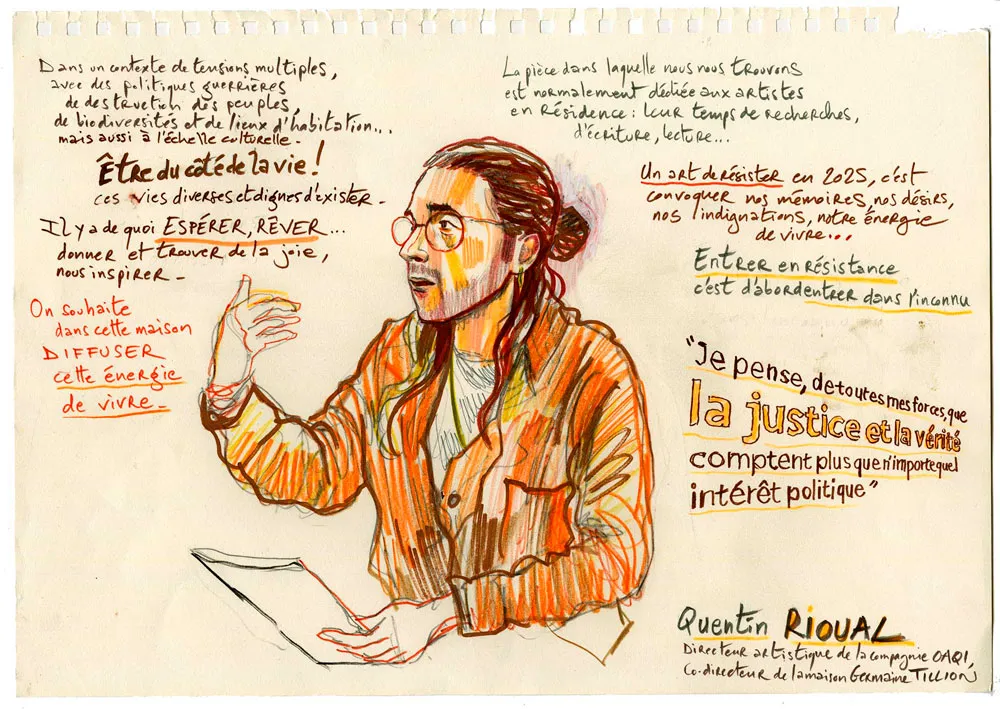 Dans un contexte de tensions multiples,
avec des politiques guerrières
de destruction des peuples,
de biodiversités et de lieux d'habitation...
mais aussi à l'échelle culturelle.
Être du côté de la vie !
ces vies diverses et dignes d'exister.
Il y a de quoi ESPÉRER, RÊVER...
donner et trouver de la joie,
nous inspirer.
On souhaite
dans cette maison
DIFFUSER
cette énergie
de vivre.
La pièce dans laquelle nous nous trouvons
est normalement dédiée aux artistes
en résidence : leur temps de recherches,
d'écriture, lecture...
Un art de résister en 2025, c'est
convoquer nos mémoires, nos désirs,
nos indignations, notre énergie
de vivre...
Entrer en résistance
c'est d'abord entrer dans l'inconnu
"Je pense, de toutes mes forces, que
la justice et la vérité
comptent plus que n'importe quel
intérêt politique"
Quentin RIOUAL
Directeur artistique de la compagnie OAQI,
Co-directeur de la maison Germaine TILLION